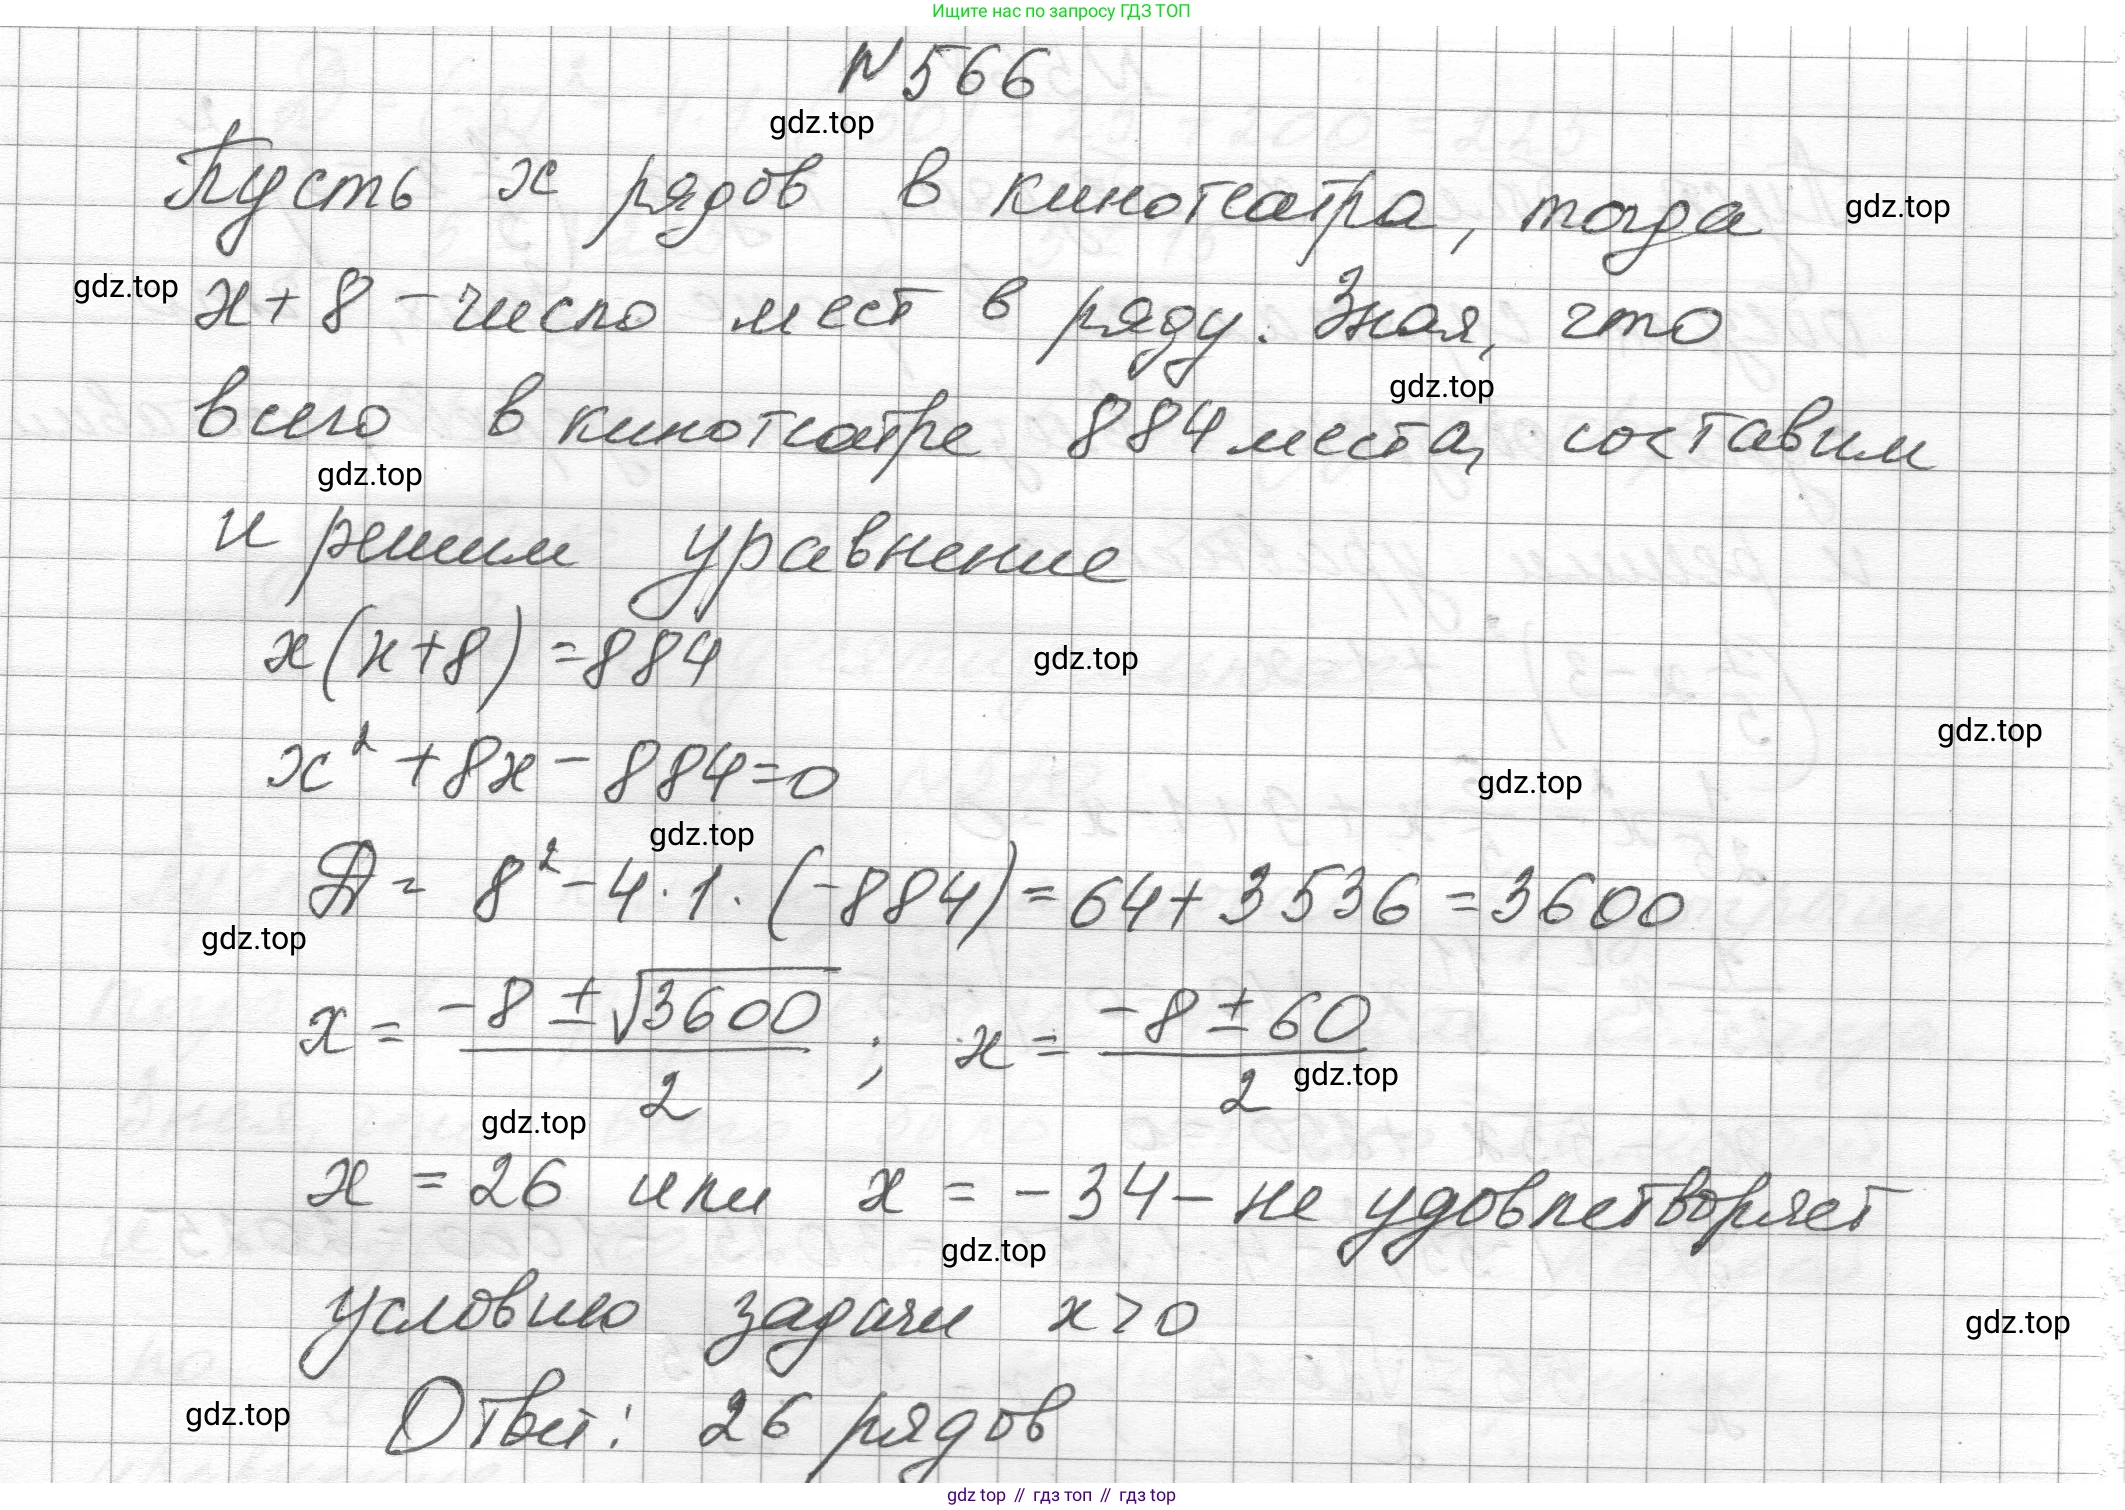 Ищите нас по запросу ГДЗ ТОП
N 566
gdz.top
Пусть x рядов в кинотеатра, тогда
gdz.top
gdz.top
x + 8 – число мест в ряду. Зная, что
gdz.top
всего в кинотеатре 884 места, составим
gdz.top
и решим уравнение
x(x+8) = 884
gdz.top
gdz.top
x² + 8x – 884 = 0
gdz.top
gdz.top
Д = 8² – 4 · 1 · (–884) = 64 + 3536 = 3600
gdz.top
x = (–8 ± √3600)/2 ; x = (–8 ± 60)/2
gdz.top
gdz.top
x = 26 или x = –34 – не удовлетворяет
gdz.top
условию задачи x > 0
gdz.top
gdz.top
Ответ: 26 рядов
gdz.top // гдз топ // гдз top